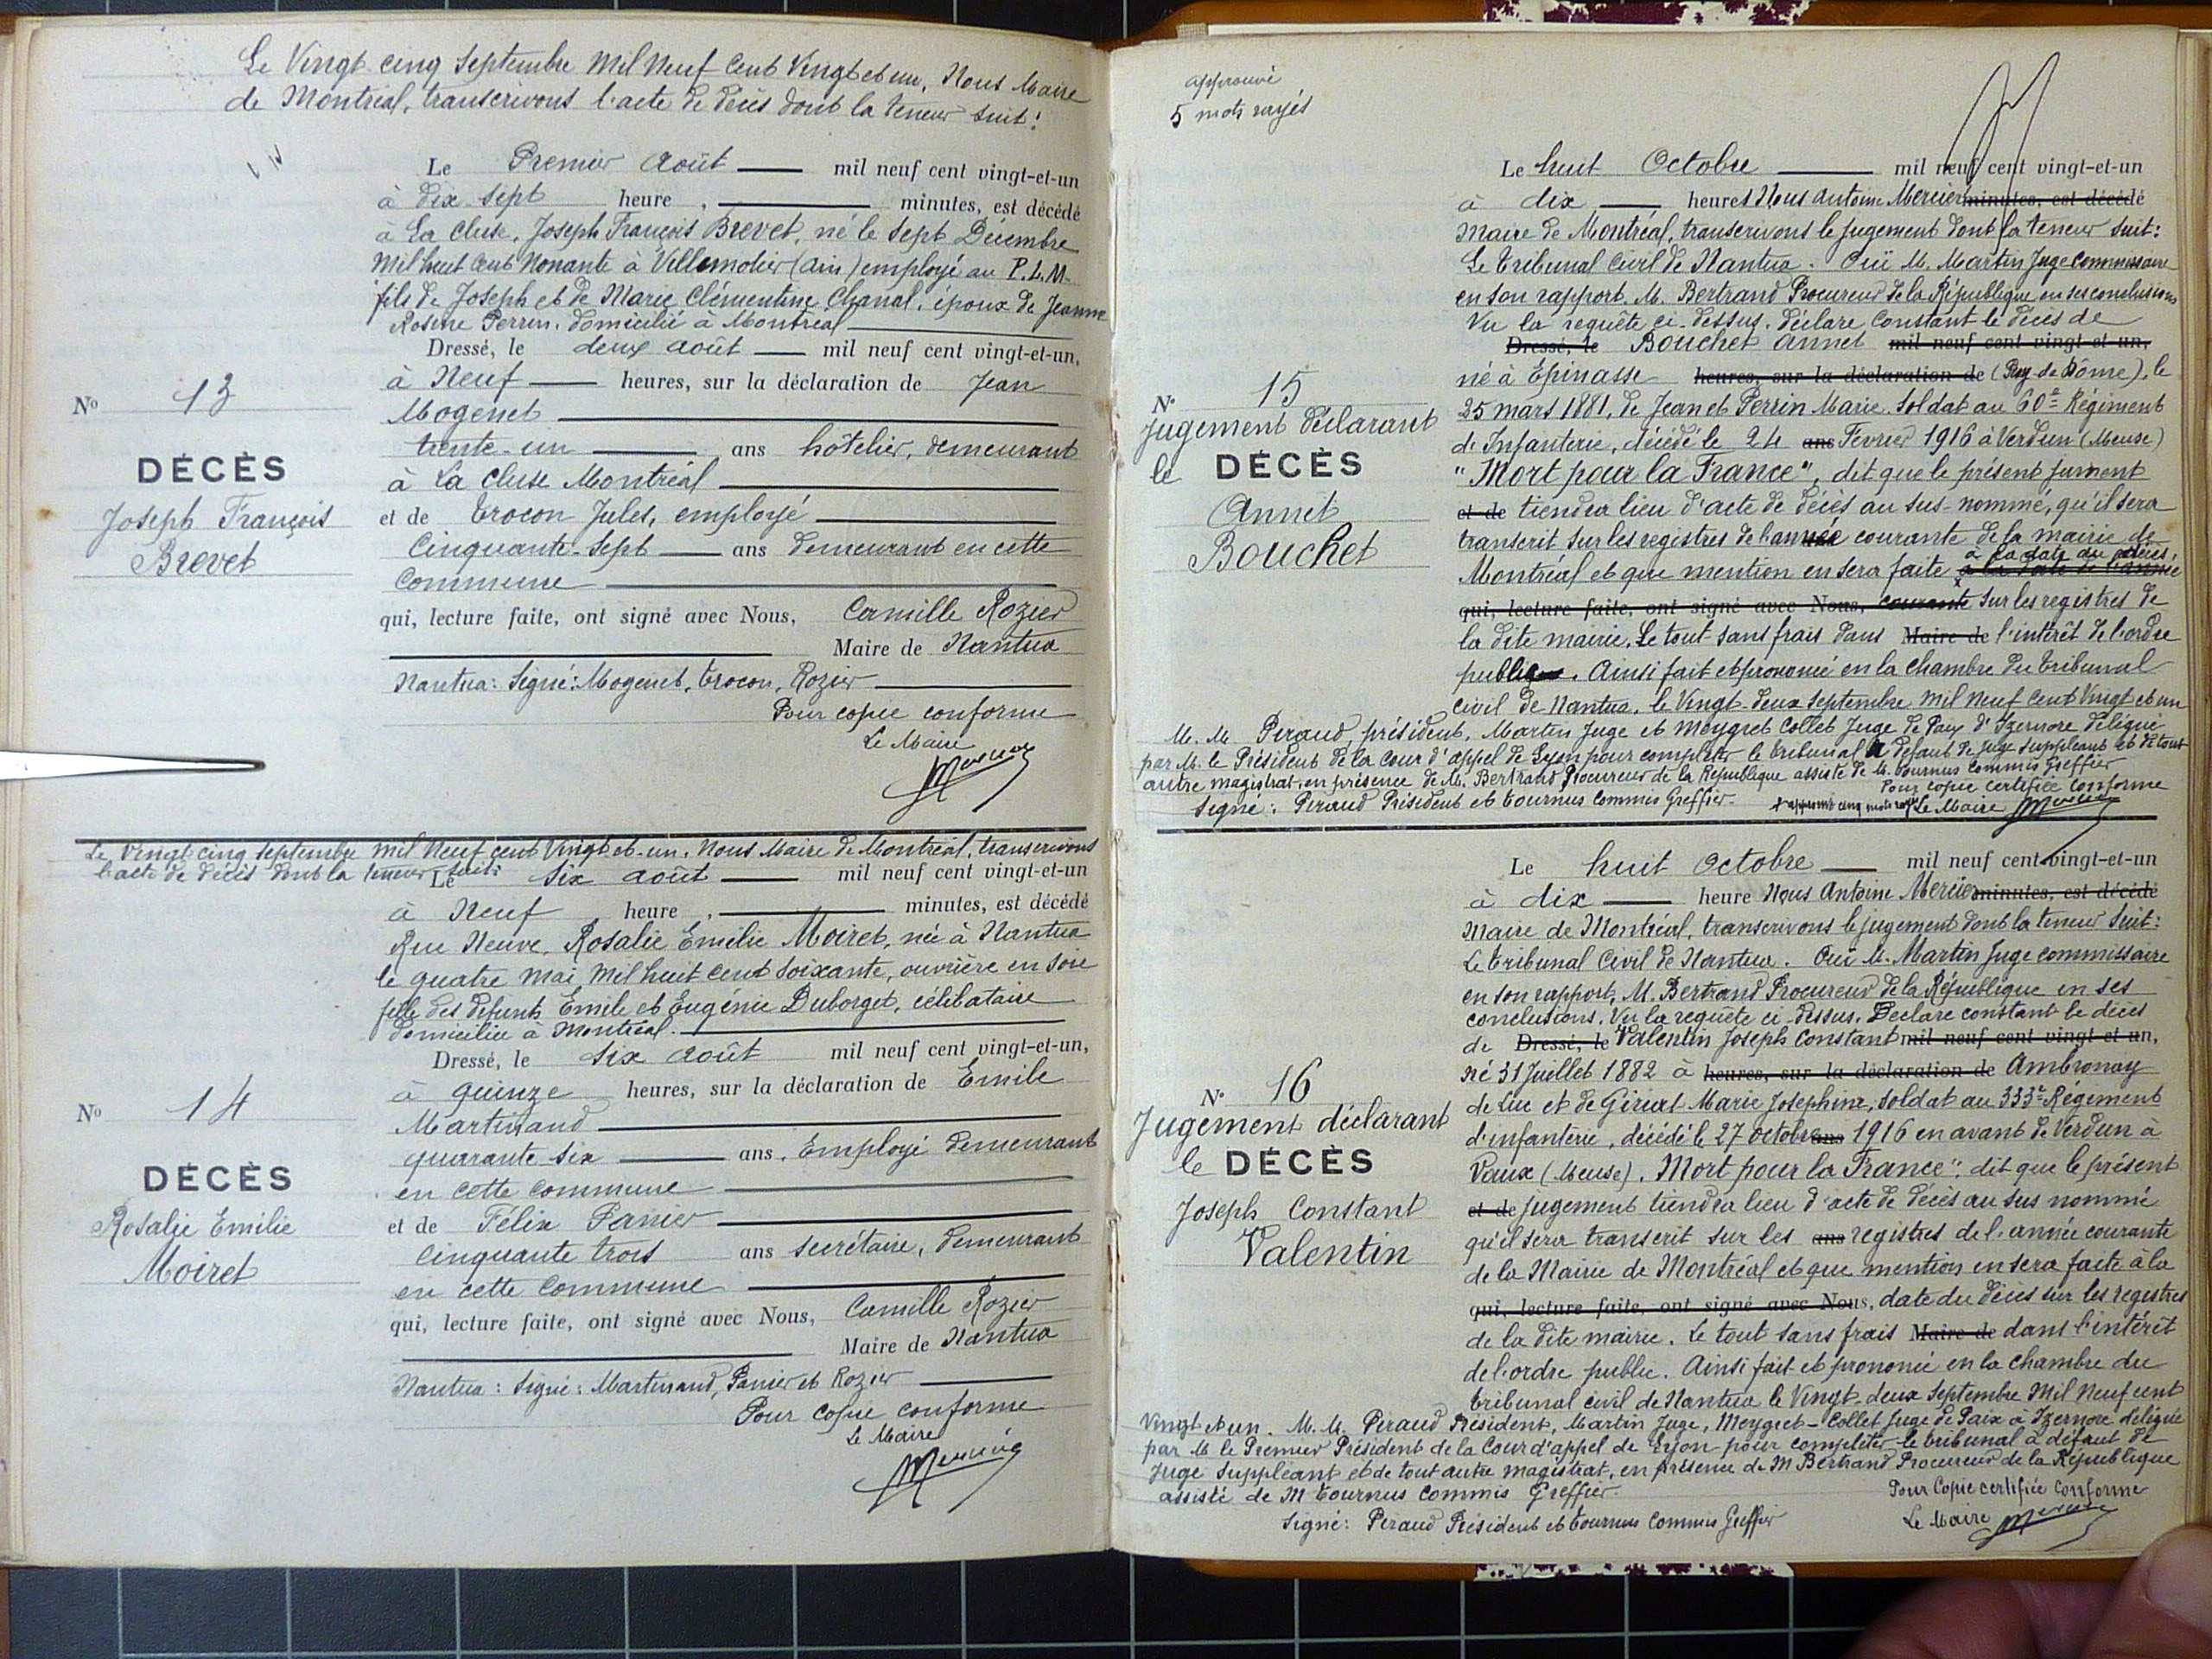 Le Vingt cinq Septembre Mil Neuf Cent Vingt et un, Nous Maire
de Montréal, transcrivons l'acte de décès dont la teneur suit:
Le Premier Août mil neuf cent vingt-et-un
à Dix-sept heure , minutes, est décédé
à La Cluse, Joseph François Brevet, né le Sept Décembre
Mil huit Cent Nonante à Villemotier (Ain) employé au P.L.M.
fils de Joseph et de Marie Clémentine Chanal, époux de Jeanne
Rosine Perrin, domicilié à Montréal
Dressé, le deux août mil neuf cent vingt-et-un,
à Neuf heures, sur la déclaration de Jean
Mogenet
trente-un ans hôtelier, demeurant
à La Cluse Montréal
et de Trocon Jules, employé
Cinquante-Sept ans demeurant en cette
Commune
qui, lecture faite, ont signé avec Nous, Camille Rozier
Maire de Nantua
Nantua: Signé: Mogenet, Trocon, Rozier
Pour copie conforme
Le Maire
Mercier
No 13
DÉCÈS
Joseph François
Brevet
Le Vingt cinq Septembre Mil Neuf cent Vingt et-un, Nous Maire de Montréal, transcrivons
l'acte de décès dont la teneur suit:
Le Six août mil neuf cent vingt-et-un
à Neuf heure , minutes, est décédé
Rue Neuve, Rosalie Emilie Moiret, née à Nantua
le quatre Mai Mil huit cent soixante, ouvrière en soie
fille des défunts Emile et Eugénie Duborget, célibataire
domiciliée à Montréal.
Dressé, le Six août mil neuf cent vingt-et-un,
à quinze heures, sur la déclaration de Emile
Martinand
quarante six ans, Employé demeurant
en cette commune
et de Félix Panier
cinquante trois ans secrétaire, demeurant
en cette commune
qui, lecture faite, ont signé avec Nous, Camille Rozier
Maire de Nantua
Nantua: Signé: Martinand, Panier et Rozier
Pour copie conforme
Le Maire
Mercier
No 14
DÉCÈS
Rosalie Emilie
Moiret
approuvé
5 mots rayés
Le huit Octobre mil neuf cent vingt-et-un
à dix heures Nous Antoine Mercier minutes, est décédé
Maire de Montréal, transcrivons le jugement dont la teneur suit:
Le Tribunal Civil de Nantua. Ouï M. Martin Juge Commissaire
en son rapport, M. Bertrand Procureur de la République en ses conclusions
Vu la requête ci-dessus, déclare Constant le décès de
Dressé, le Bouchet Annet mil neuf cent vingt-et-un,
né à Epinasse heures, sur la déclaration de (Puy de Dôme), le
25 mars 1881, de Jean et Perrin Marie, Soldat au 60e Régiment
d'Infanterie, décédé le 24 ans Février 1916 à Verdun (Meuse)
"Mort pour la France", dit que le présent jument
et de tiendra lieu d'acte de décès au sus-nommé, qu'il sera
transcrit sur les registres de l'année courante de la mairie de
à la date du décès,
Montréal et que mention en sera faite à la date de l'année
qui, lecture faite, ont signé avec Nous, courante sur les registres de
la dite mairie. Le tout sans frais dans Maire de l'intérêt de l'ordre
public. Ainsi fait et prononcé en la chambre du tribunal
civil de Nantua, le Vingt-deux Septembre Mil Neuf Cent Vingt et un
M. M. Peraud, président, Martin Juge et Meygret Collet Juge de Paix d'Izernore délégué
par M. le Président de la Cour d'appel de Lyon pour compléter le tribunal à défaut de juge suppléant et de tout
autre magistrat, en présence de M. Bertrand Procureur de la République assisté de M. Tournus Commis Greffier
Pour copie certifiée conforme
Signé: Peraud Président et Tournus Commis Greffier. approuvé cinq mots rayés Le Maire Mercier
N° 15
Jugement déclarant
le DÉCÈS
Annet
Bouchet
Le huit Octobre mil neuf cent vingt-et-un
à dix heure Nous Antoine Mercier minutes, est décédé
Maire de Montréal, transcrivons le jugement dont la teneur suit:
Le Tribunal Civil de Nantua. Ouï M. Martin Juge commissaire
en son rapport, M. Bertrand Procureur de la République en ses
conclusions, Vu la requête ci-dessus, Déclare constant le décès
de Dressé, le Valentin Joseph Constant mil neuf cent vingt-et-un,
né 31 Juillet 1882 à heures, sur la déclaration de Ambronay
de Luc et de Marie Josephine, soldat au 333e Régiment
d'infanterie, décédé le 27 octobre ans 1916 en avant de Verdun à
Vaux (Meuse). Mort pour la France": dit que le présent
et de jugement tiendra lieu d'acte de décès au sus nommé
qu'il sera transcrit sur les ans registres de l'année courante
de la Mairie de Montréal et que mention en sera faite à la
qui, lecture faite, ont signé avec Nous, date du décès sur les registres
de la dite mairie. Le tout sans frais Maire de dans l'intérêt
de l'ordre public. Ainsi fait et prononcé en la chambre du
tribunal civil de Nantua le Vingt-deux Septembre Mil Neuf cent
Vingt et un. M. M. Peraud Président, Martin Juge, Meygret-Collet Juge de Paix à Izernore délégué
par M le Premier Président de la Cour d'appel de Lyon pour compléter le tribunal à défaut de
Juge Suppléant et de tout autre magistrat, en présence de M Bertrand Procureur de la République
assisté de M Tournus Commis Greffier.
Pour Copie certifiée Conforme
Signé: Peraud Président et Tournus Commis Greffier
Le Maire Mercier
N° 16
Jugement déclarant
le DÉCÈS
Joseph Constant
Valentin